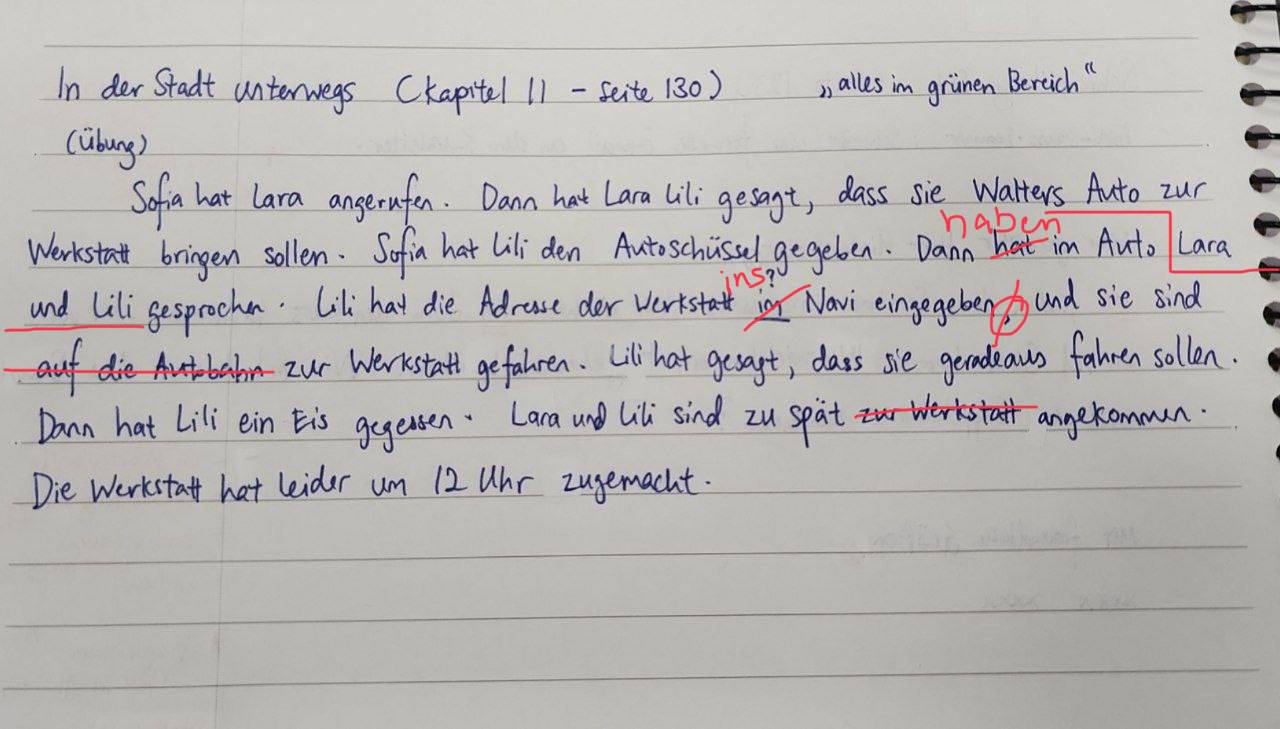 In der Stadt unterwegs (Kapitel 11 - Seite 130) „alles im grünen Bereich“
(Übung)
Sofia hat Lara angerufen. Dann hat Lara Lili gesagt, dass sie Walters Auto zur
haben
Werkstatt bringen sollen. Sofia hat Lili den Autoschüssel gegeben. Dann hat im Auto Lara
ins?
und Lili gesprochen. Lili hat die Adresse der Werkstatt im Navi eingegeben, und sie sind
auf die Autobahn zur Werkstatt gefahren. Lili hat gesagt, dass sie geradeaus fahren sollen.
Dann hat Lili ein Eis gegessen. Lara und Lili sind zu spät zur Werkstatt angekommen.
Die Werkstatt hat leider um 12 Uhr zugemacht.